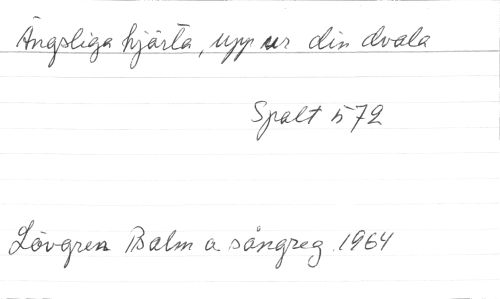 Ängsliga hjärta, upp ur din dvala
Spalt 572
Lövgren Psalm o sångreg. 1964